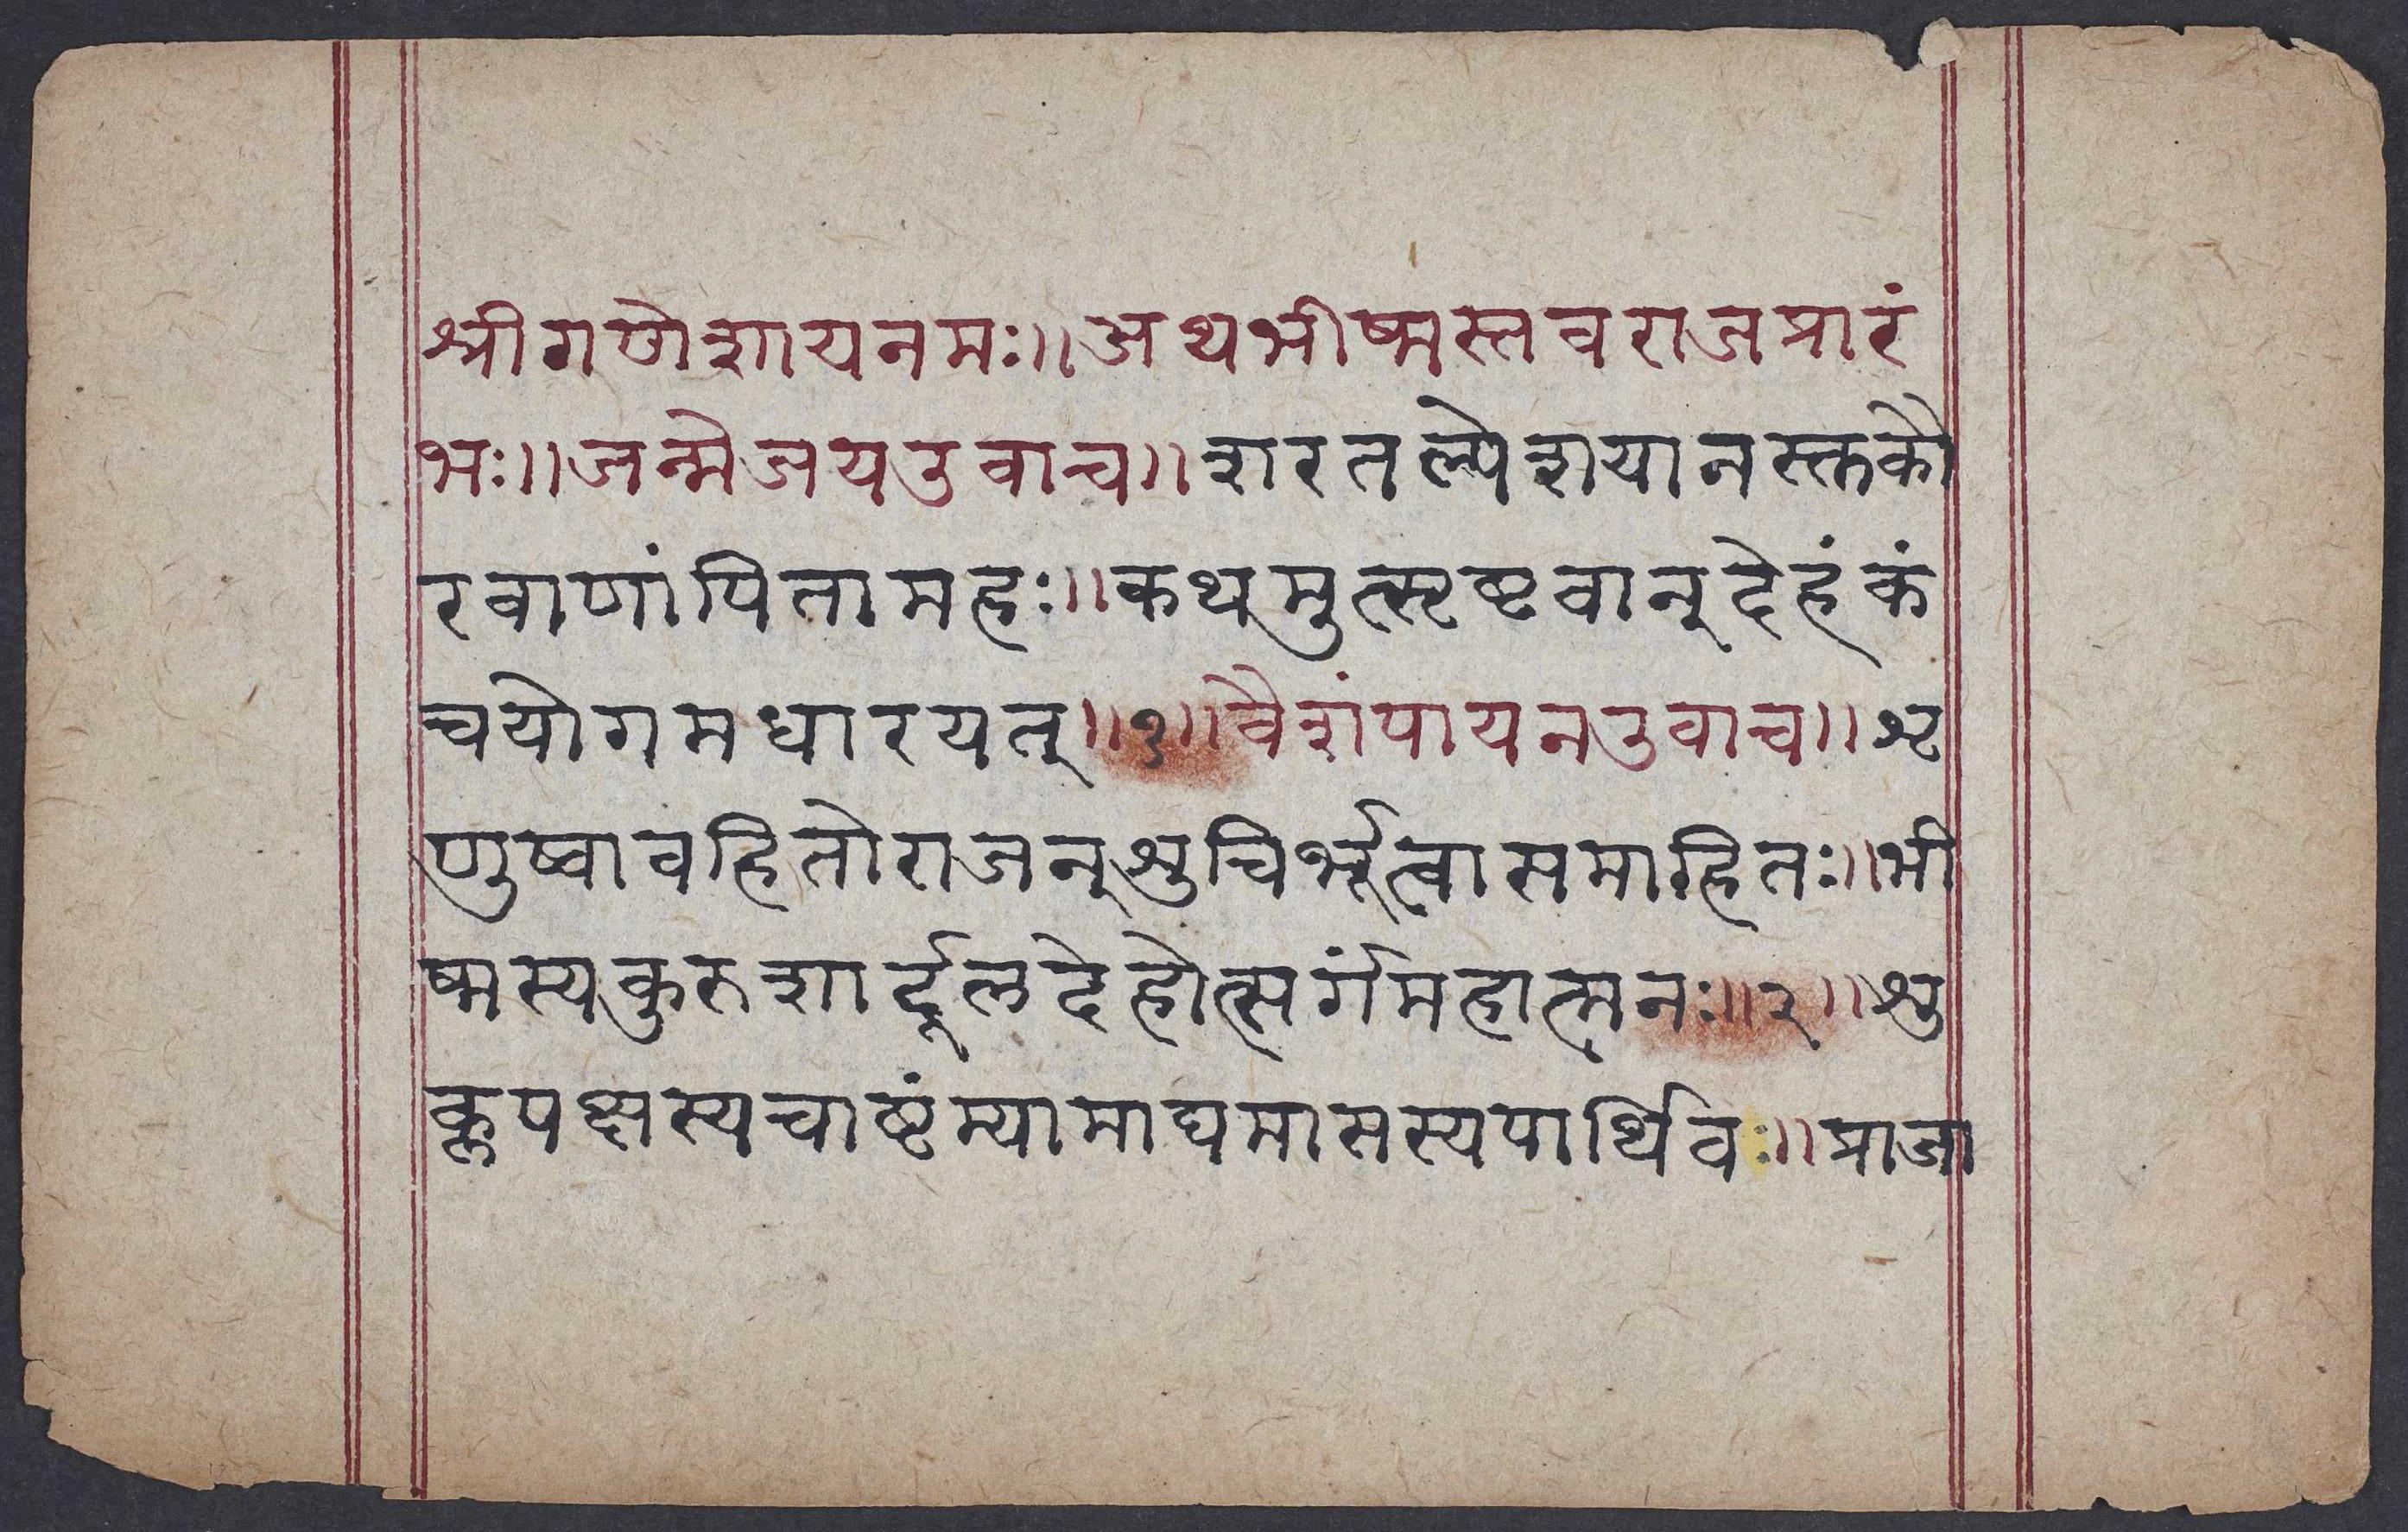 श्रीगणेशायनमः॥अथभीष्मस्तवराजप्रारं
भः॥जन्मेजयउवाच॥शरतल्पेशयानस्तुकौ
रवाणांपितामहः॥कथमुत्सृष्टवान्देहंकं
चयोगमधारयत्॥१॥वैशंपायनउवाच॥शृ
णुष्वावहितोराजन्शुचिर्भूत्वासमाहितः॥भी
ष्मस्यकुरुशार्दूलदेहोत्सर्गंमहात्मनः॥२॥शु
क्लपक्षस्यचाष्टंम्यामाघमासस्यपार्थिवः॥प्राजा